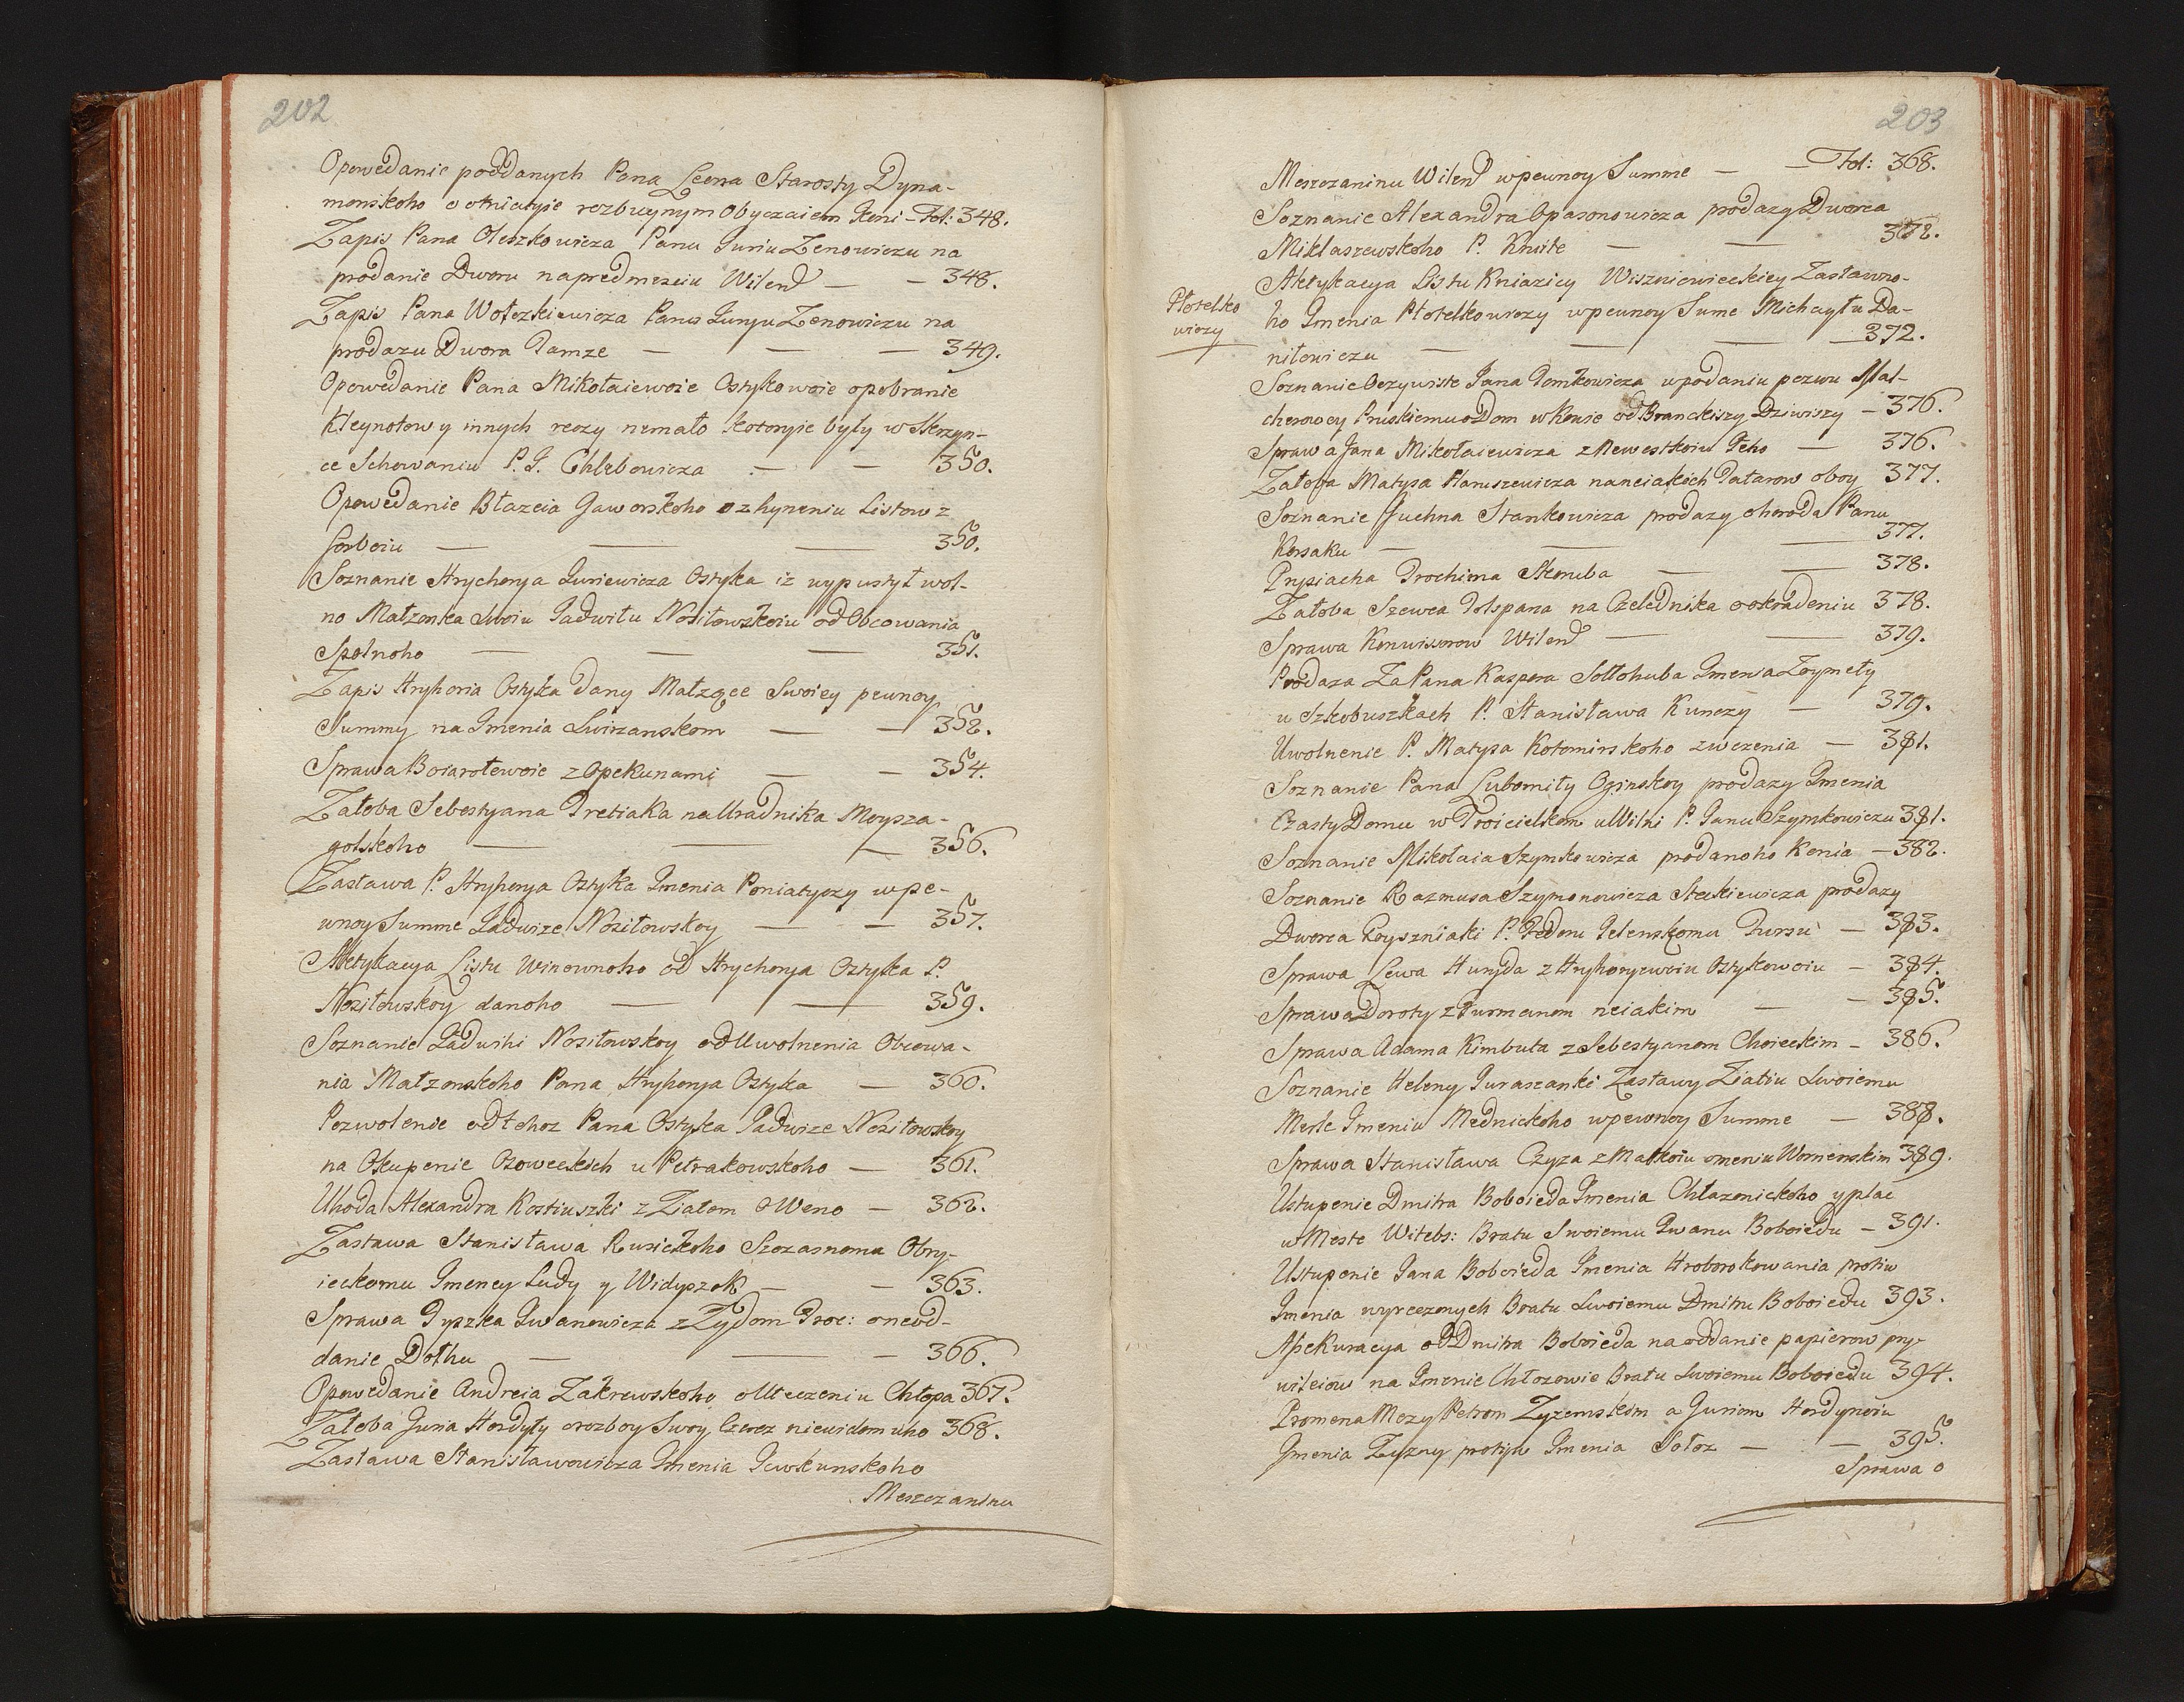 202
Opowedanie poddanych Pana Leona Starosty Dyna-
monskoho o otniatyie rozbuynym Obyczaiem Koni - Fol: 348.
Zapis Pana Oleszkowicza Panu Juriu Zenowiczu na
prodanie Dworu napredmesciu Wilend — — 348.
Zapis Pana Wołczkiewicza Panu Juryu Zenowiczu na
prodazu Dwora Tamze — — — 349.
Opowedanie Pana Mikołaiewoie Ostykowoie opobranie
Kleynotow y innych reczy nemało kotoryie były w Skrzyn-
ce Schowaniu P. J. Chlebowicza — — 350.
Opowedanie Błazeia Jaworskoho o zhyneniu Listow z
Torboiu — — — 350.
Soznanie Hrychorya Juriewicza Ostyka iz wypustył wol-
no Małzonka Swoiu Jadwihu Nosiłowskoiu od Obcowania
Spolnoho — — — 351.
Zapis Hryhoria Ostyka dany Małzące Swoiey pewnoy
Summy na Imenia Swirzanskom — — 352.
Sprawa Boiarołewoie z Opekunami — — 354.
Załoba Sebestyana Tretiaka na Uradnika Moysza-
golskoho — — — 356.
Zastawa P. Hryhorya Ostyka Imenia Poniatyczy w pe-
wnoy Summe Jadwize Nosiłowskoy — — 357.
Aktykacya Listu Winownoho od Hrychorya Ostyka P.
Nosiłowskoy danoho — — 359.
Soznanie Jadwihi Nosiłowskoy od Uwolnenia Obcowa-
nia Małzonskoho Pana Hryhorya Ostyka — 360.
Pozwolenie od tohoz Pana Ostyka Jadwize Nosiłowskoy
na Okupenie Osoweckich u Petrakowskoho — 361.
Uhoda Alexandra Kostiuszki z Ziatem o Weno — 362.
Zastawa Stanisława Rusickoho Szczasnomu Obry-
ieckomu Imeney Ludy y Widyszok — — 363.
Sprawa Tyszka Iwanowicza z Zydom Troc: oneod-
danie Dołhu — — — 366.
Opowedanie Andreia Zakrewskoho o Uteczeniu Chłopa 367.
Załoba Juria Hordyły orozboy Swoy Czerez niewidomuho 368.
Zastawa Stanisławowicza Imenia Jewkunskoho
Meszczaninu
203
Meszczaninu Wilend wpewnoy Summe — — Fol: 368.
Soznanie Alexandra Oparonowicza prodazy Dworca
Miklaszewskoho P. Kmite — — 372.
Aktykacya Listu Kniazicy Wiszniewieckiey Zastawno-
Płotelko
wiczy
ho Imenia Płotelkowiczy wpewnoy Sume Michayłu Da-
niłowiczu — — — 372.
Soznanie Oczywiste Jana Tomkowicza upodaniu pozwu Mal-
cherowey Pruskiemu o Dom w Kowie od Branckiszy Dziwiszy — 376.
Sprawa Jana Mikołaiewicza z Newestkoiu Jeho — 376.
Załoba Matysa Haruszewicza naneiakich Tatarow oboy 377.
Soznanie Juchna Stankowicza prodazy ohoroda Panu
Korsaku — — — 377.
Prysiacha Trochima Skoruba — — 378.
Załoba Szewca Tolspana na Czelednika ookradeniu 378.
Sprawa Konwissorow Wilend — — 379.
Prodaza Za Pana Kaspora Sołłohuba Imenia Zoyneły
u Szkobuszkach P. Stanisława Kunczy — 379.
Uwolnenie P. Matysa Kołominskoho zwezenia — 381.
Soznanie Pana Lubomiły Oginskoy prodazy Imenia
Czasty Domu w Troicielkom u Wilni P. Janu Szymkowiczu 381.
Soznanie Mikołaia Szymkowicza prodanoho Konia — 382.
Soznanie Razmusa Szymonowicza Steckiewicza prodazy
Dworca Royszniaki P. Fedoru Jelenskomu Tursu — 383.
Sprawa Lewa Huryda z Hryhoryewoiu Ostykowoiu — 384.
Sprawa Doroty z Furmanom neiakim — — 385.
Sprawa Adama Kimbuta z Sebestyanom Choieckim — 386.
Soznanie Heleny Juraszanki Zastawy Ziatiu Swoiemu
Merle Imeniu Mednickoho wpewnoy Summe — 388.
Sprawa Stanisława Czyza z Matkoiu omeniu Wornenskim 389.
Ustupenie Dmitra Boboieda Imenia Chłazonickoho y plac
u Meste Witebs: Bratu Swoiemu Iwanu Boboiedu — 391.
Ustupenie Jana Boboieda Imenia Hroborokowania protiw
Imenia wyrczezonych Bratu Swoiemu Dmitru Boboiedu 393.
Assekuracya od Dmitra Boboieda naoddanie papierow pry-
wileiow na Imenie Chłozowie Bratu Swoiemu Boboiedu 394.
Promena Mezy Petrom Zyzemskim a Juriom Hordynoiu
Imenia Zyzny protiw Imenia Sołoz — — 395.
Sprawa o